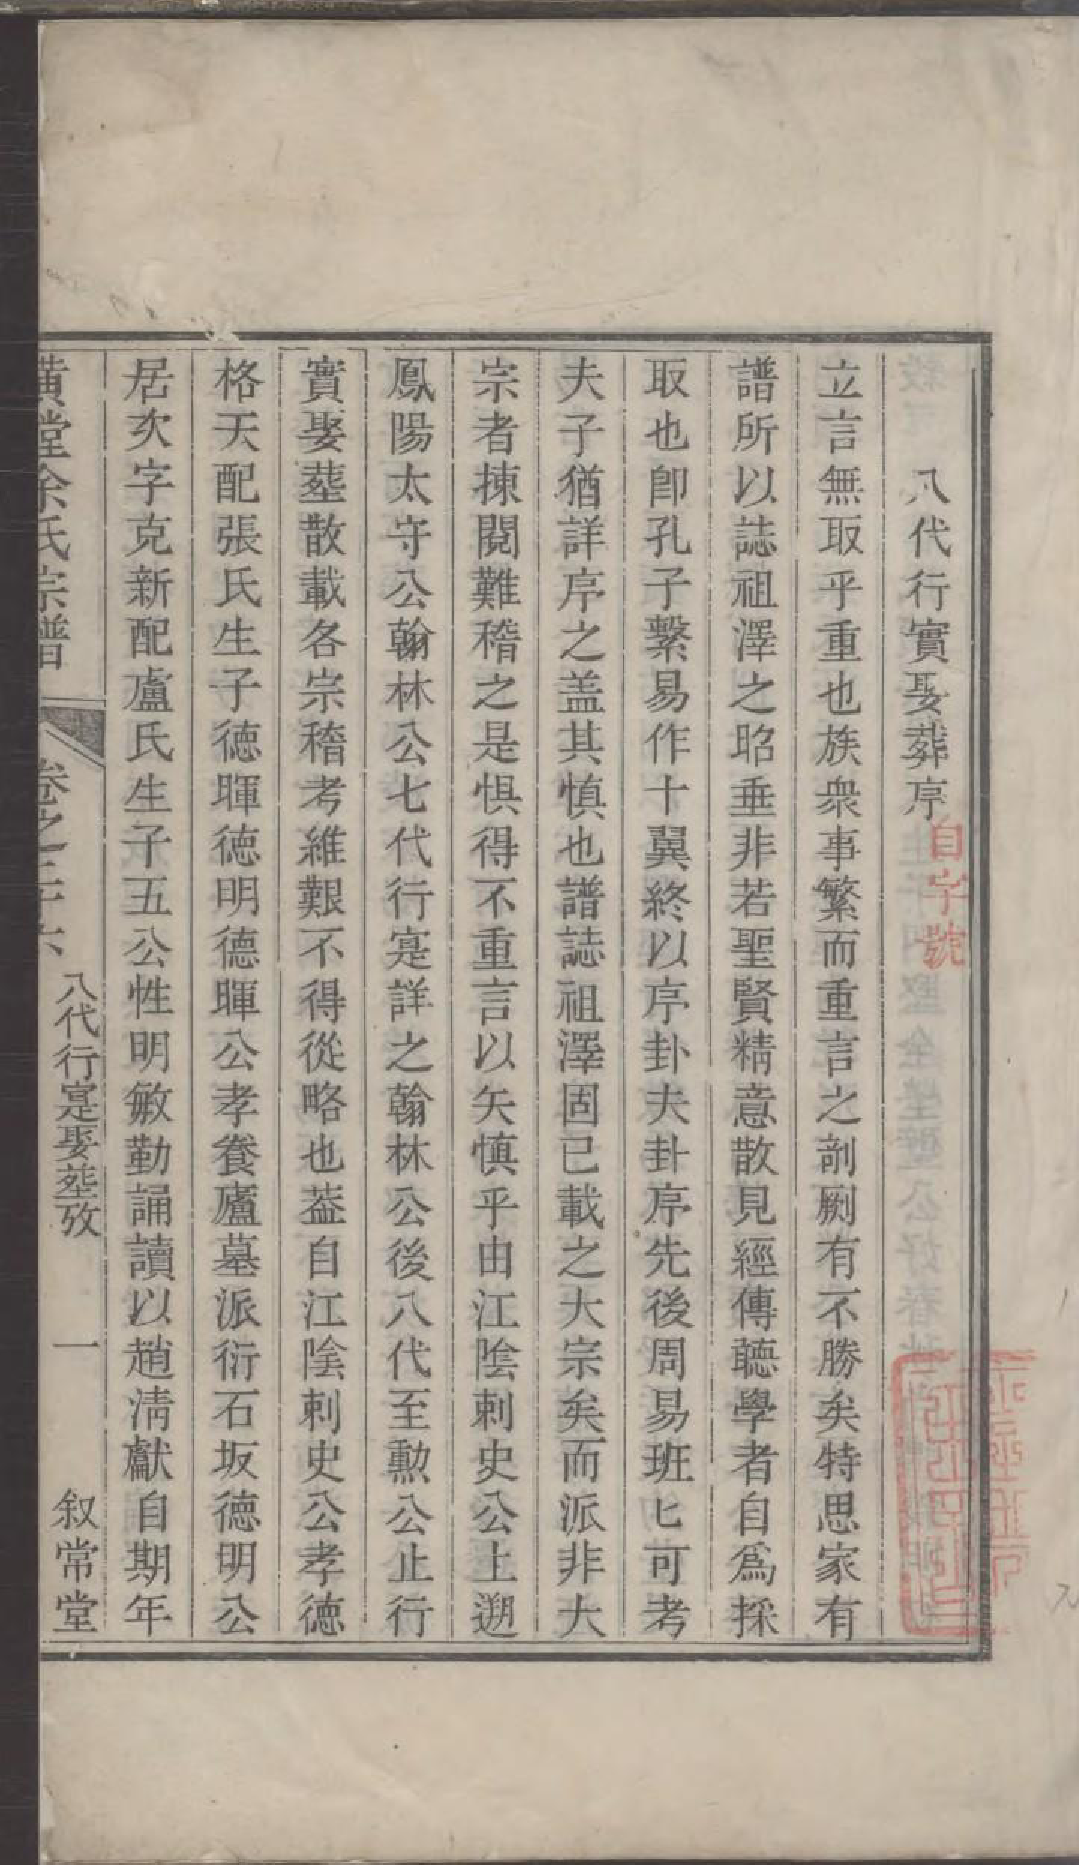 八代行實娶葬序
自字號
立言無取乎重也族衆事繁而重言之剞劂有不勝矣特思家有
譜所以誌祖澤之昭垂非若聖賢精意散見經傳聽學者自爲採
取也卽孔子繫易作十翼終以序卦夫卦序先後周易班匕可考
夫子猶詳序之盖其慎也譜誌祖澤固已載之大宗矣而派非大
宗者揀閱難稽之是惧得不重言以矢慎乎由江隂刺史公上遡
鳳陽太守公翰林公七代行寔詳之翰林公後八代至勲公止行
實娶塟散載各宗稽考維艱不得從略也葢自江隂刺史公孝德
格天配張氏生子德暉德明德暉公孝養廬墓派衍石坂德明公
居次字克新配盧氏生子五公性明敏勤誦讀以趙淸獻自期年
黄堂余氏宗譜
卷之二十六
八代行寔娶塟攷
一
叙常堂